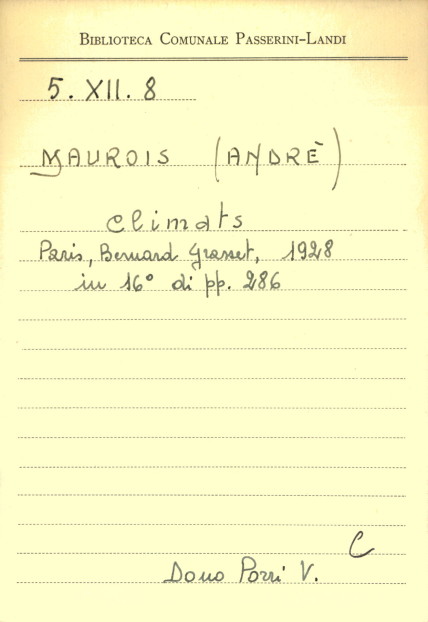 BIBLIOTECA COMUNALE PASSERINI-LANDI
5. XII. 8
MAUROIS (ANDRÈ)
Climats
Paris, Bernard Grasset, 1928
in 16° di pp. 286
C
Dono Porri V.